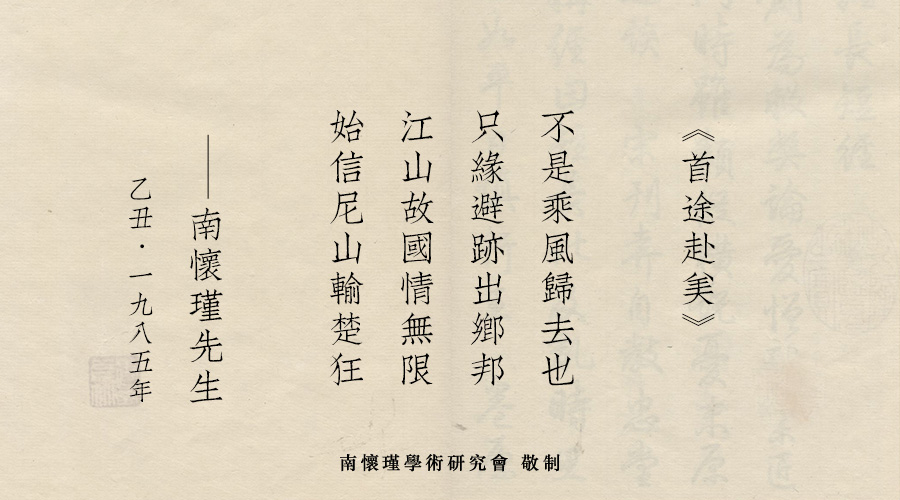 《首途赴美》
不是乘風歸去也
只緣避跡出鄉邦
江山故國情無限
始信尼山輸楚狂
——南懷瑾先生
乙丑·一九八五年
南懷瑾學術研究會 敬制